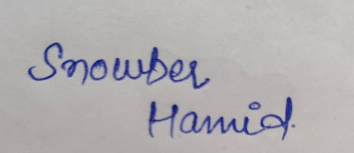 Snowber
Hamid.